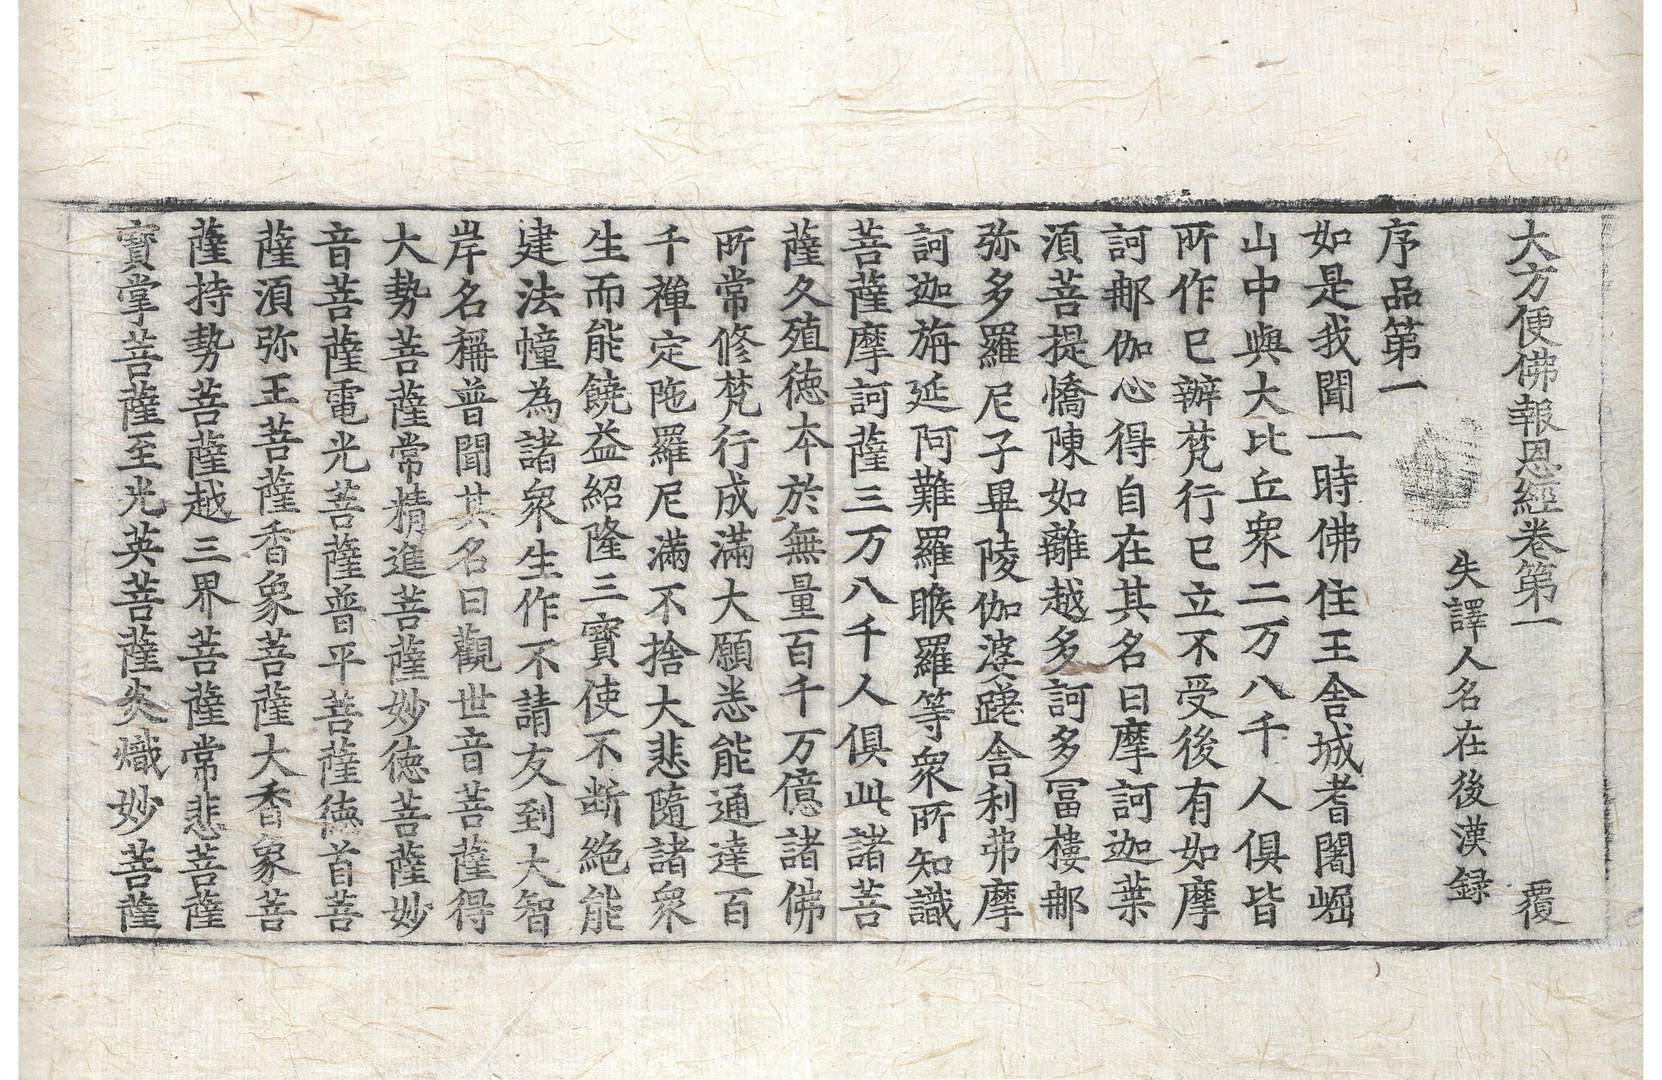 大方便佛報恩經卷第一　覆
失譯人名在後漢録
序品第一
如是我聞一時佛住王舍城耆闍崛
山中與大比丘衆二万八千人俱皆
所作已辦梵行已立不受後有如摩
訶那伽心得自在其名曰摩訶迦葉
湏菩提憍陳如離越多訶多冨樓那
弥多羅尼子畢陵伽婆蹉舍利弗摩
訶迦旃延阿難羅睺羅等衆所知識
菩薩摩訶薩三万八千人俱此諸菩
薩久殖徳本於無量百千万億諸佛
所常修梵行成滿大願悉能通達百
千禪定陁羅尼滿不捨大悲隨諸衆
生而能饒益紹隆三寶使不断絶能
建法幢為諸衆生作不請友到大智
岸名稱普聞其名曰觀世音菩薩得
大勢菩薩常精進菩薩妙徳菩薩妙
音菩薩電光菩薩普平菩薩徳首菩
薩湏弥王菩薩香象菩薩大香象菩
薩持勢菩薩越三界菩薩常悲菩薩
寶掌菩薩至光英菩薩炎熾妙菩薩